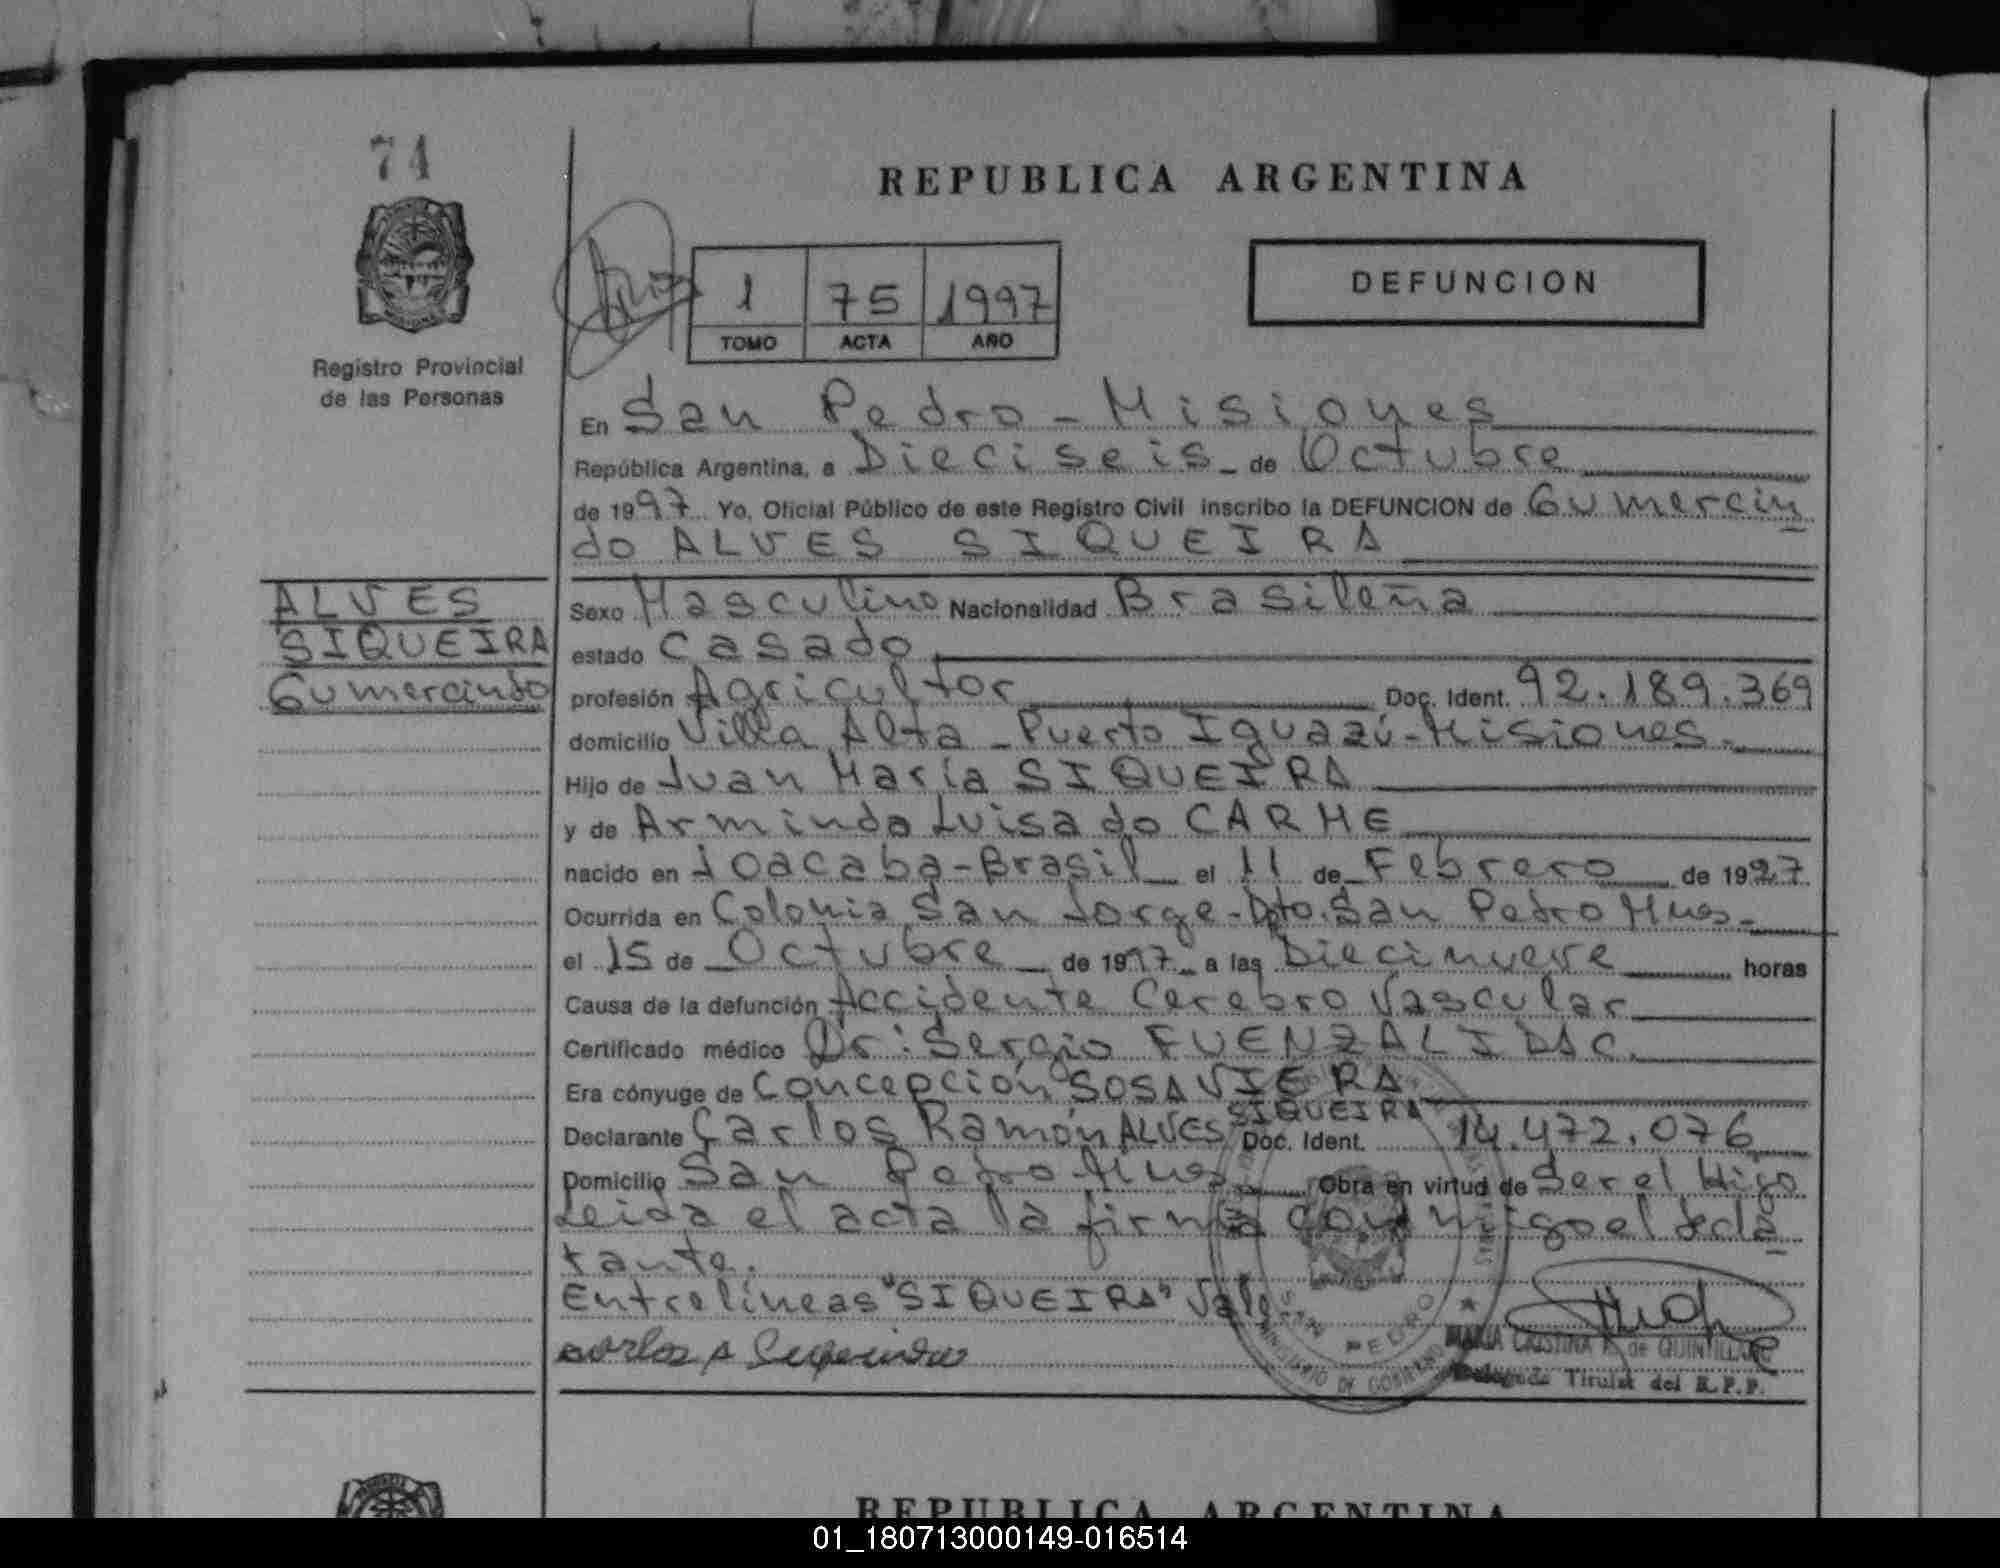 74
REPUBLICA ARGENTINA
1 75 1997
TOMO ACTA AÑO
DEFUNCION
Registro Provincial
de las Personas
En San Pedro - Misiones
República Argentina, a Dieciseis - de Octubre
de 1997 Yo, Oficial Público de este Registro Civil inscribo la DEFUNCION de Gumercin
do ALVES SIQUEIRA
ALVES
SIQUEIRA
Gumercindo
Sexo Masculino Nacionalidad Brasileña
estado casado
profesión Agricultor Doc. Ident. 92.189.369
domicilio Villa Alta - Puerto Iguazú - Misiones.
Hijo de Juan María SIQUEIRA
y de Arminda Luisa do CARME
nacido en Joacaba - Brasil el 11 de Febrero de 1927
Ocurrida en Colonia San Jorge - Dpto. San Pedro Mnes -
el 15 de Octubre de 1997 a las Diecinueve horas
Causa de la defunción Accidente Cerebro Vascular
Certificado médico Dr: Sergio FUENZALIDA C.
Era cónyuge de Concepción SOSA VIERA
SIQUEIRA
Declarante Carlos Ramón ALVES Doc. Ident. 14.472.076
Domicilio San Pedro Mnes Obra en virtud de Ser el Hijo
Leida el acta la firma conmigo el decla
rante.
Entrelíneas "SIQUEIRA" Vale.
SAN PEDRO
MINISTERIO DE GOBIERNO
MARIA CRISTINA de QUINTILLAN
Delegada Titular del R.P.P.
REPUBLICA ARGENTINA
01_180713000149-016514